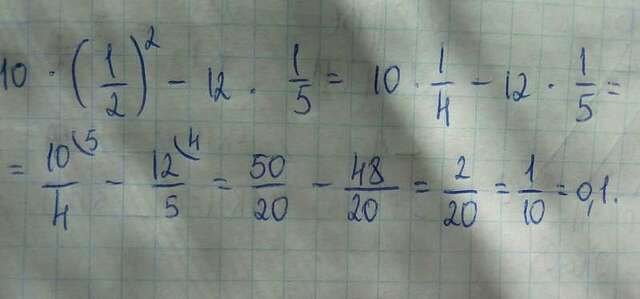 10 · (1/2)² − 12 · 1/5 = 10 · 1/4 − 12 · 1/5 =
= 10⁽⁵/4 − 12⁽⁴/5 = 50/20 − 48/20 = 2/20 = 1/10 = 0,1.